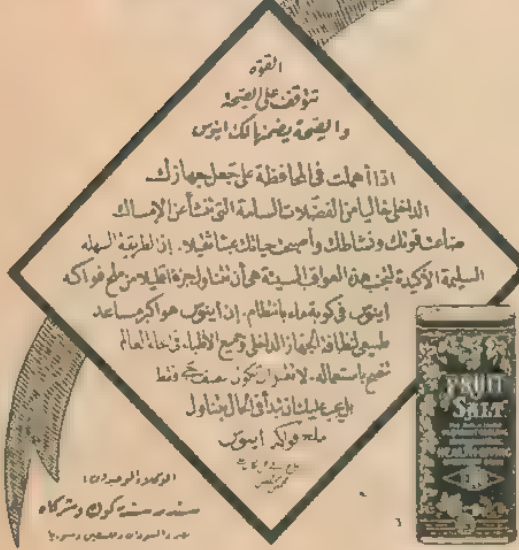 القوة
تتوقف على الصحة
والصحة يضمنها لك اينوس
اذا أهملت في المحافظة على جعل جهازك
الداخلي خاليا من الفضلات السامة التي تنشأ عن الإمساك
ضاعت قوتك ونشاطك وأصبحت حياتك عبئا ثقيلا. إن الطريقة السهلة
السليمة الأكيدة لتجنب هذه العواقب السيئة هي أن تتناول جرعة قليلة من ملح فواكه
اينوس في كوبة ماء بانتظام. إن اينوس هو اكبر مساعد
طبيعي لنظافة الجهاز الداخلي وجميع الأطباء في العالم
تنصح باستعماله. لا تنتظر ان تكون فقط
بل يجب عليك ان تبدأ في الحال بتناول
ملح فواكه اينوس
الوكلاء الوحيدون:
كوك وشركاه
والسودان وفلسطين وسوريا
FRUIT
SALT
HEALTH-GIVING
ENO